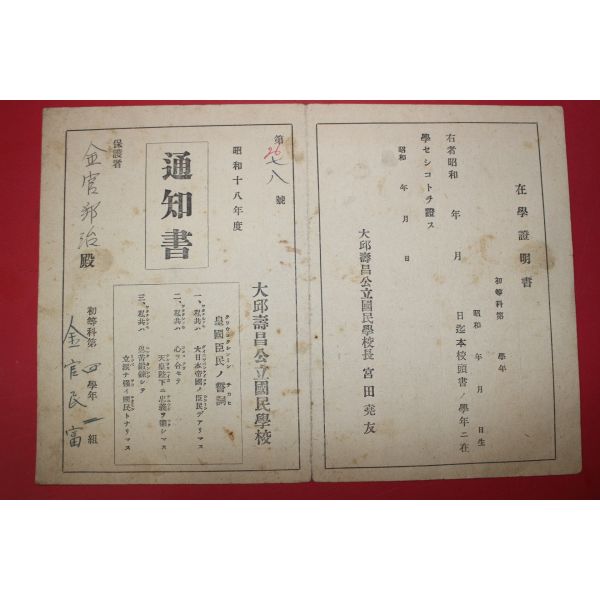 在學證明書
初等科第　學年
昭和　年　月　日生
右者昭和　年　月　日迄本校頭書ノ學年ニ在
學セシコトヲ證ス
昭和　年　月　日
大邱壽昌公立國民學校長　宮田堯友
第 26 七八 號
昭和十八年度
通知書
保護者
金官　治殿
大邱壽昌公立國民學校
皇國臣民ノ誓詞
一、私共ハ　大日本帝國ノ臣民デアリマス
二、私共ハ　心ヲ合セテ
天皇陛下ニ忠義ヲ盡シマス
三、私共ハ　忍苦鍛鍊シテ
立派ナ強イ國民トナリマス
初等科第四學年一組
金官民富